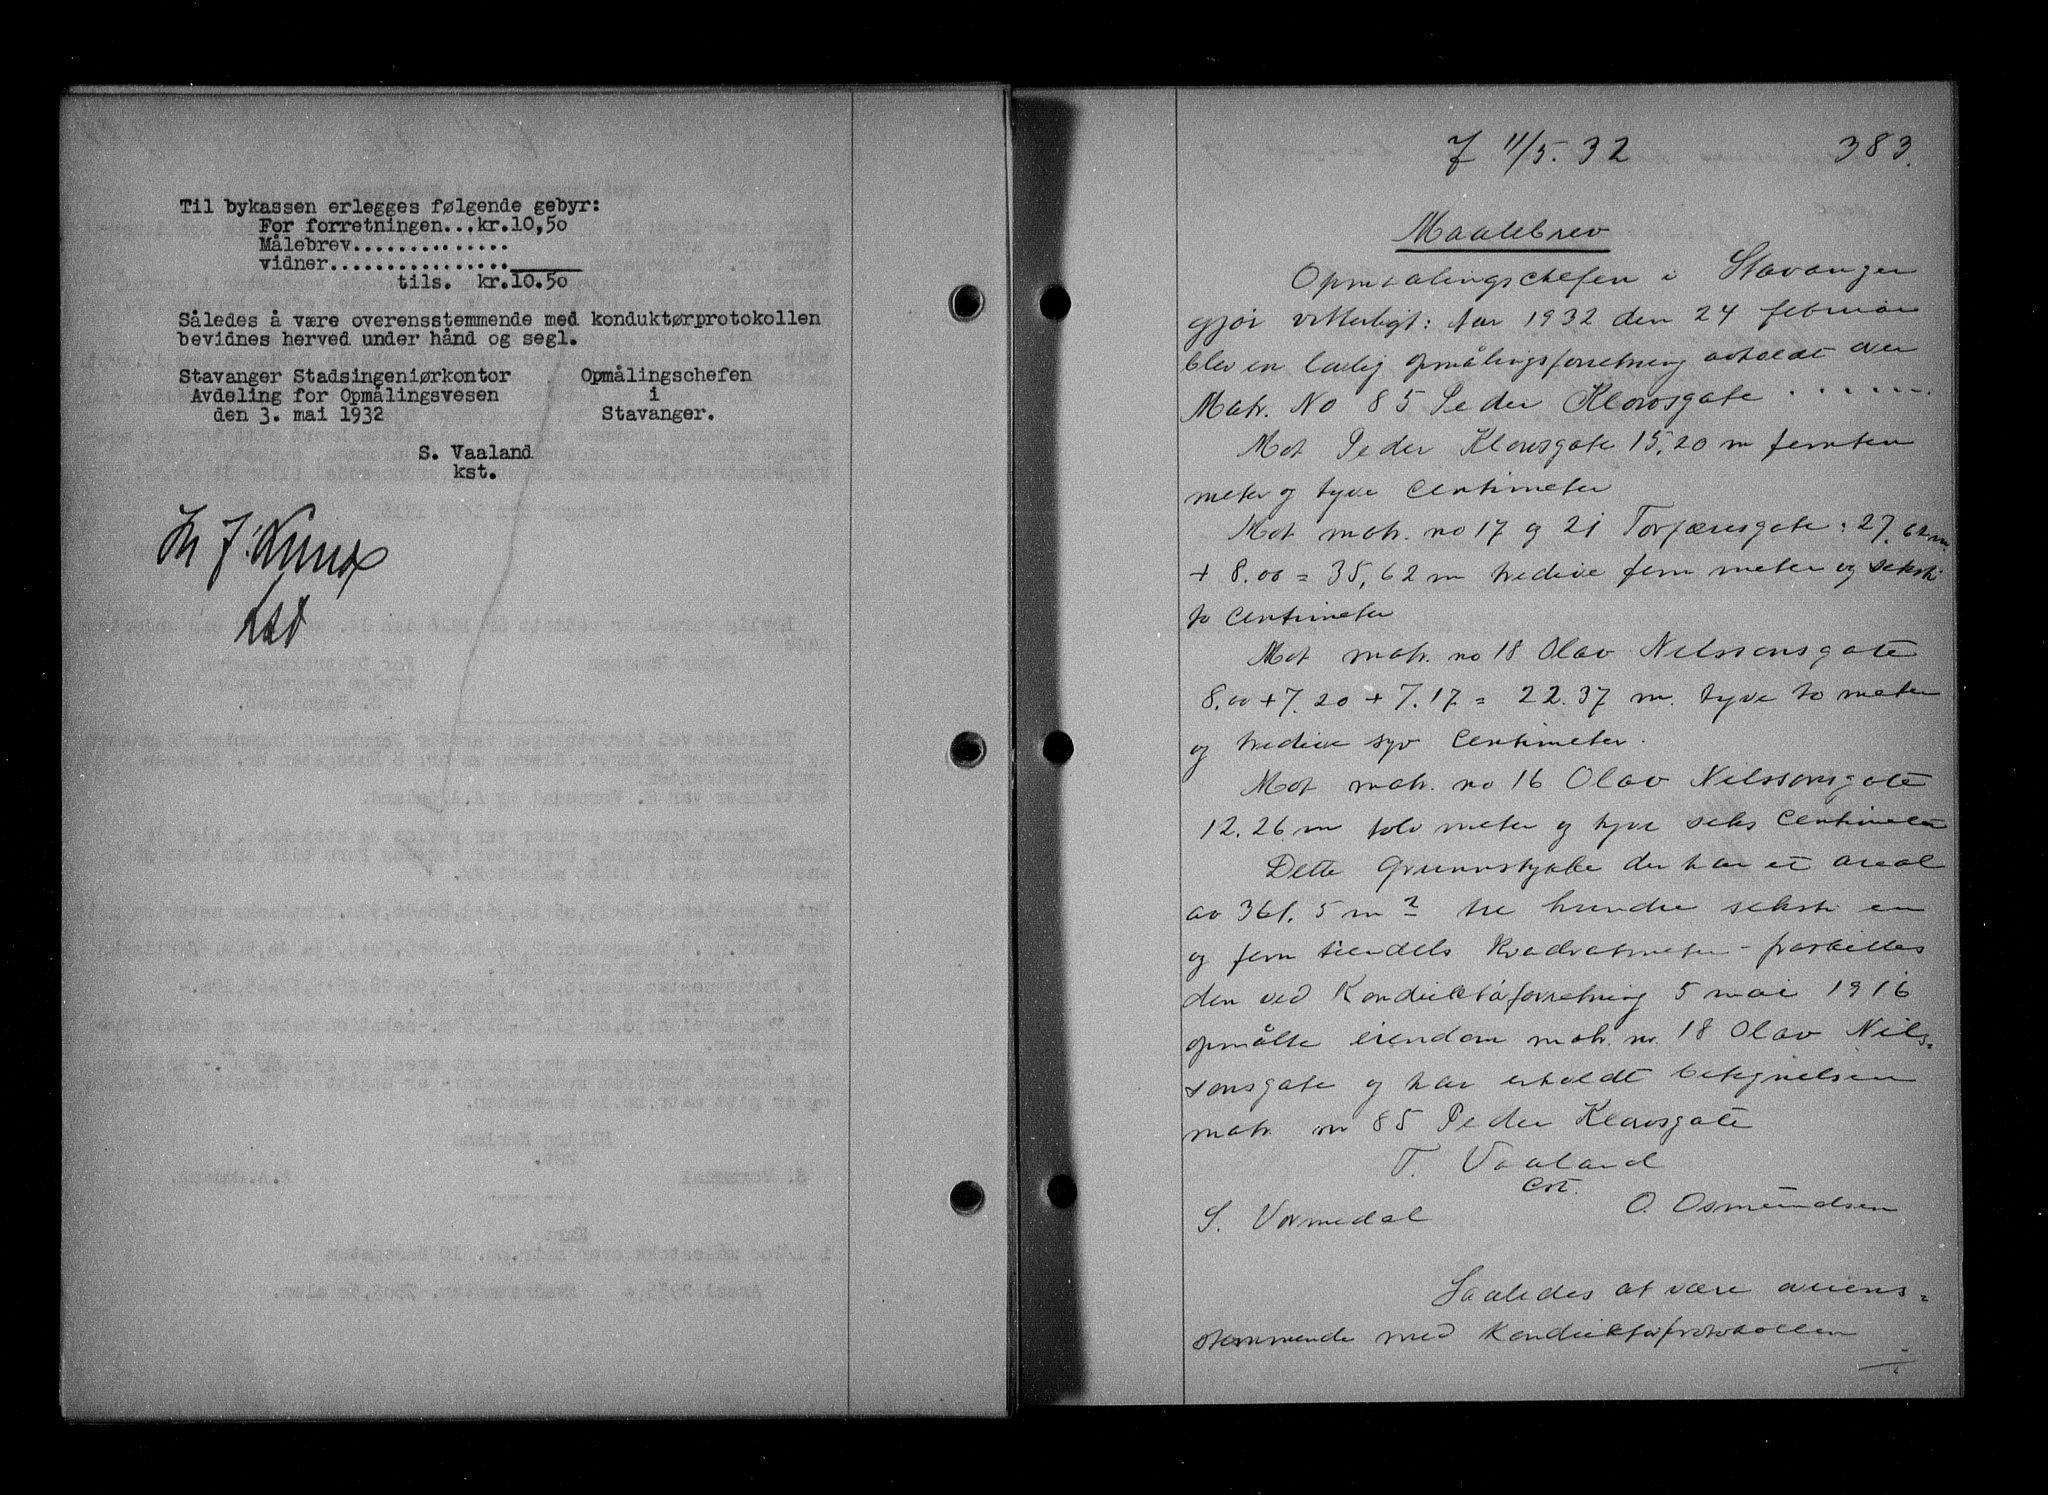 Til bykassen erlegges følgende gebyr:
For forretningen...kr.10,50
Målebrev..............
vidner................
tils. kr.10.50
Således å være overensstemmende med konduktørprotokollen
bevidnes herved under hånd og segl.
Stavanger Stadsingeniørkontor Opmålingschefen
Avdeling for Opmålingsvesen i
den 3. mai 1932 Stavanger.
S. Vaaland
kst.
7 11/5.32 383.
Maalebrev
Opmaalingschefen i Stavanger
gjør vitterligt: Aar 1932 den 24 februar
blev en lovlig opmålingsforretning avholdt over
Matr. No 85 Peder Klowsgate .......
Mot Peder Klowsgate 15,20 m femten
meter og tyve centimeter
Mot matr. no 17 og 21 Torfæusgate: 27,62 m.
+ 8.00 = 35,62 m tredive fem meter og seksti
to centimeter
Mot matr. no 18 Olav Nilssonsgate
8.00 + 7.20 + 7.17 = 22.37 m. tyve to meter
og tredive syv centimeter.
Mot matr. no 16 Olav Nilssonsgate
12.26 m tolv meter og tyve seks centimeter
Dette grunnstykke der har et areal
av 361.5 m2 tre hundre seksti en
og fem tiendels kvadratmeter - fraskilles
den ved Konduktørforretning 5 mai 1916
opmålte eiendom matr. no. 18 Olav Nils-
sonsgate og har erholdt betegnelsen
matr no 85 Peder Klowsgate
T. Vaaland
cst.
S. Vormedal O. Osmundsen
Saaledes at være overens-
stemmende med Konduktørprotokollen